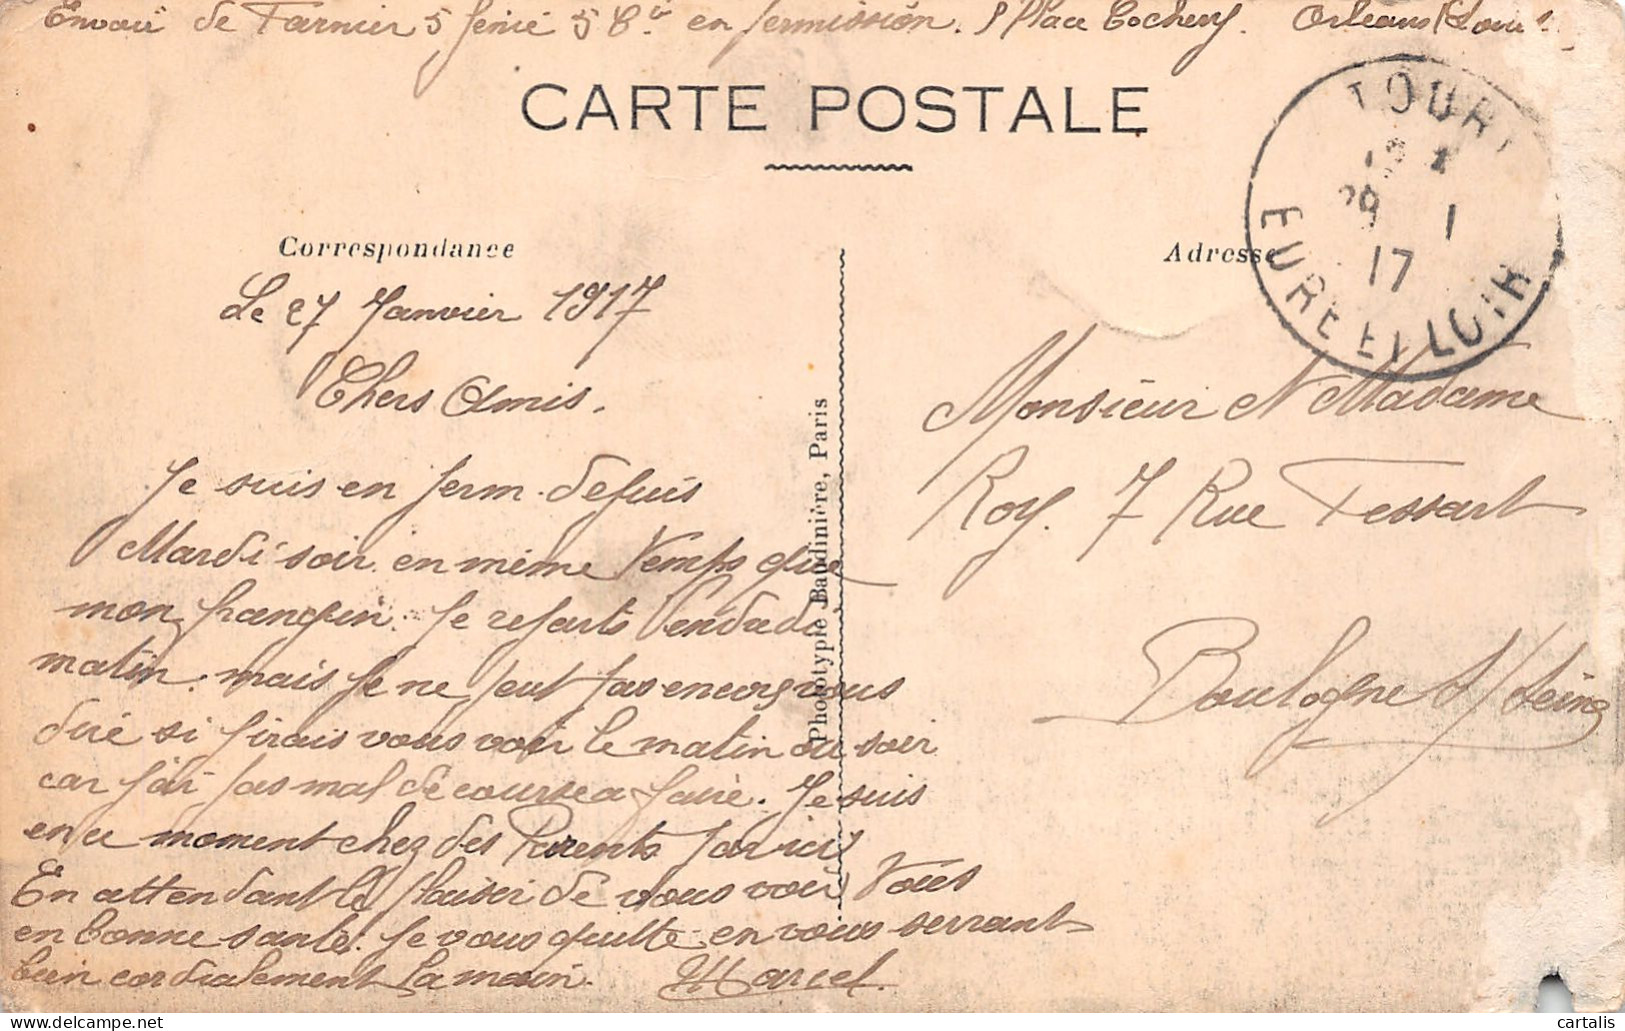 Envoi de Farnier 5 Génie 5 Cie en permission. Place Cochery. Orléans
CARTE POSTALE
TOURY
29 1
17
EURE ET LOIR
Correspondance
Adresse
Le 27 Janvier 1917
Chers Amis.
Je suis en perm. depuis
Mardi soir en même temps que
mon frangin. Je reparts Vendredi
matin. mais je ne peut pas encore vous
dire si j'irais vous voir le matin ou soir
car j'ai pas mal de courses a faire. Je suis
en ce moment chez des Parents par ici
En attendant le plaisir de vous voir Tous
en bonne santé. Je vous quitte en vous serrant
bien cordialement la main. Marcel.
Phototypie Baudinière, Paris
Monsieur et Madame
Roy. 7 Rue Tessart
Boulogne s/ Seine
cartalis